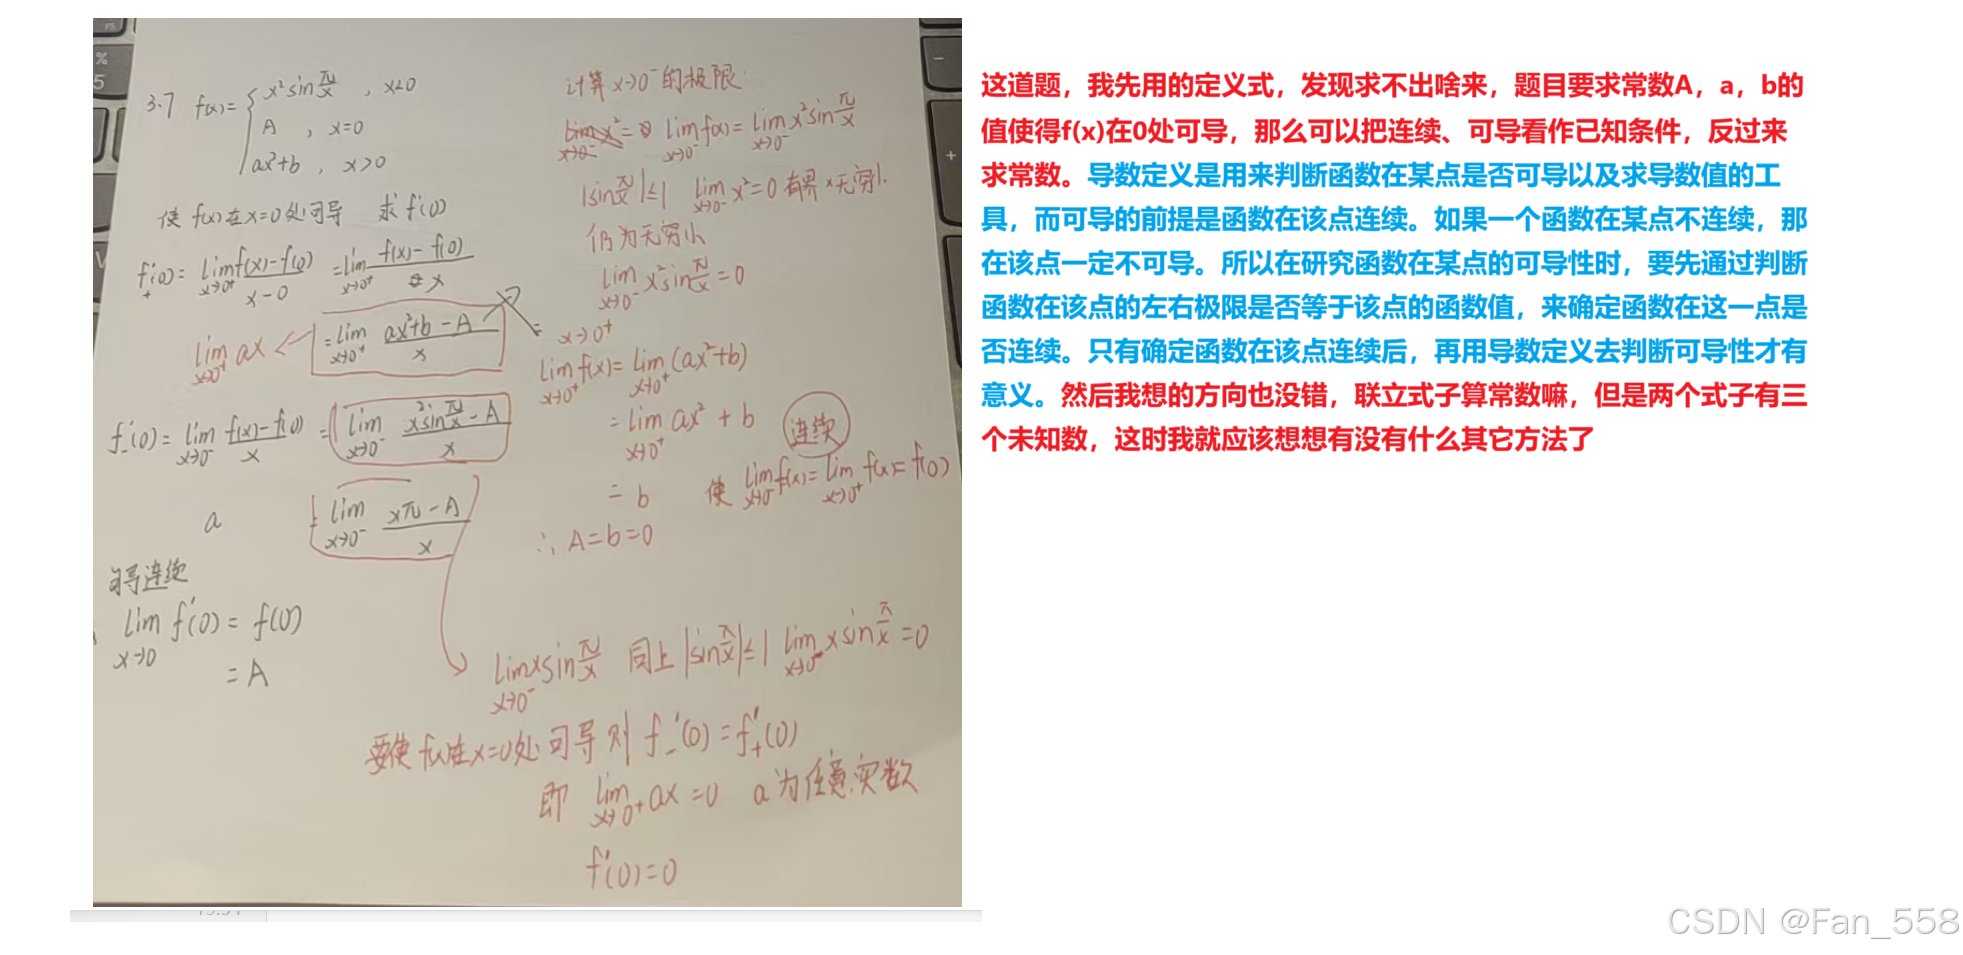 3.7 f(x)= { x²sin π/x , x<0
A , x=0
ax²+b , x>0
使 f(x)在x=0处可导 求 f'(0)
f'₊(0)= lim x→0⁺ f(x)-f(0) / x-0 = lim x→0⁺ f(x)-f(0) / x
lim x→0⁺ ax ← = lim x→0⁺ ax²+b-A / x
f'₋(0)= lim x→0⁻ f(x)-f(0) / x = lim x→0⁻ x²sin π/x - A / x
a = lim x→0⁻ xπ-A / x
可导连续
lim x→0 f'(0) = f(0)
= A
计算x→0⁻的极限:
lim x→0⁻ x²=0 lim x→0⁻ f(x)= lim x→0⁻ x²sin π/x
|sin π/x|≤1 lim x→0⁻ x²=0 有界×无穷小
仍为无穷小
lim x→0⁻ x²sin π/x =0
x→0⁺
lim x→0⁺ f(x)= lim x→0⁺ (ax²+b)
= lim x→0⁺ ax² + b 连续
= b 使 lim x→0⁻ f(x)= lim x→0⁺ f(x)= f(0)
∴ A=b=0
lim x→0⁻ xsin π/x 同上 |sin π/x|≤1 lim x→0⁻ xsin π/x =0
要使f(x)在x=0处可导 则 f'₋(0)=f'₊(0)
即 lim x→0⁺ ax =0 a为任意实数
f'(0)=0
这道题，我先用的定义式，发现求不出啥来，题目要求常数A，a，b的
值使得f(x)在0处可导，那么可以把连续、可导看作已知条件，反过来
求常数。导数定义是用来判断函数在某点是否可导以及求导数值的工
具，而可导的前提是函数在该点连续。如果一个函数在某点不连续，那
在该点一定不可导。所以在研究函数在某点的可导性时，要先通过判断
函数在该点的左右极限是否等于该点的函数值，来确定函数在这一点是
否连续。只有确定函数在该点连续后，再用导数定义去判断可导性才有
意义。然后我想的方向也没错，联立式子算常数嘛，但是两个式子有三
个未知数，这时我就应该想想有没有什么其它方法了
CSDN @Fan_558